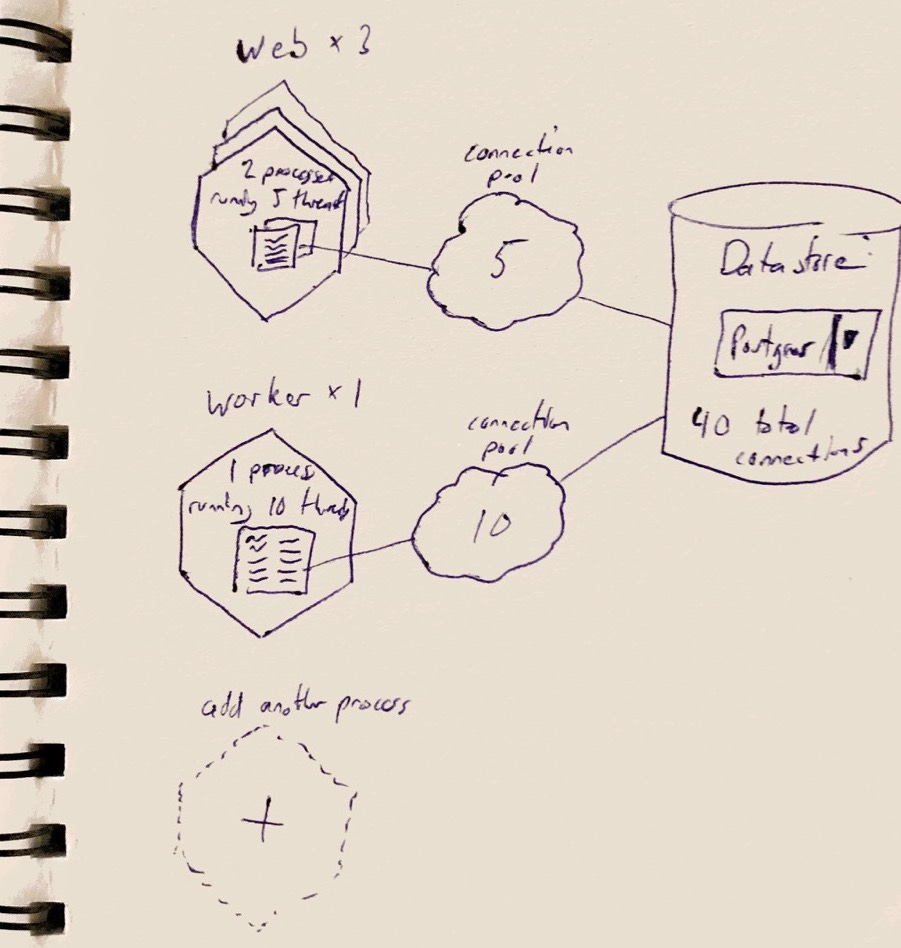 web × 3
2 processes
running 5 threads
connection
pool
5
Datastore:
Postgres
40 total
connections
worker × 1
1 process
running 10 threads
connection
pool
10
add another process
+